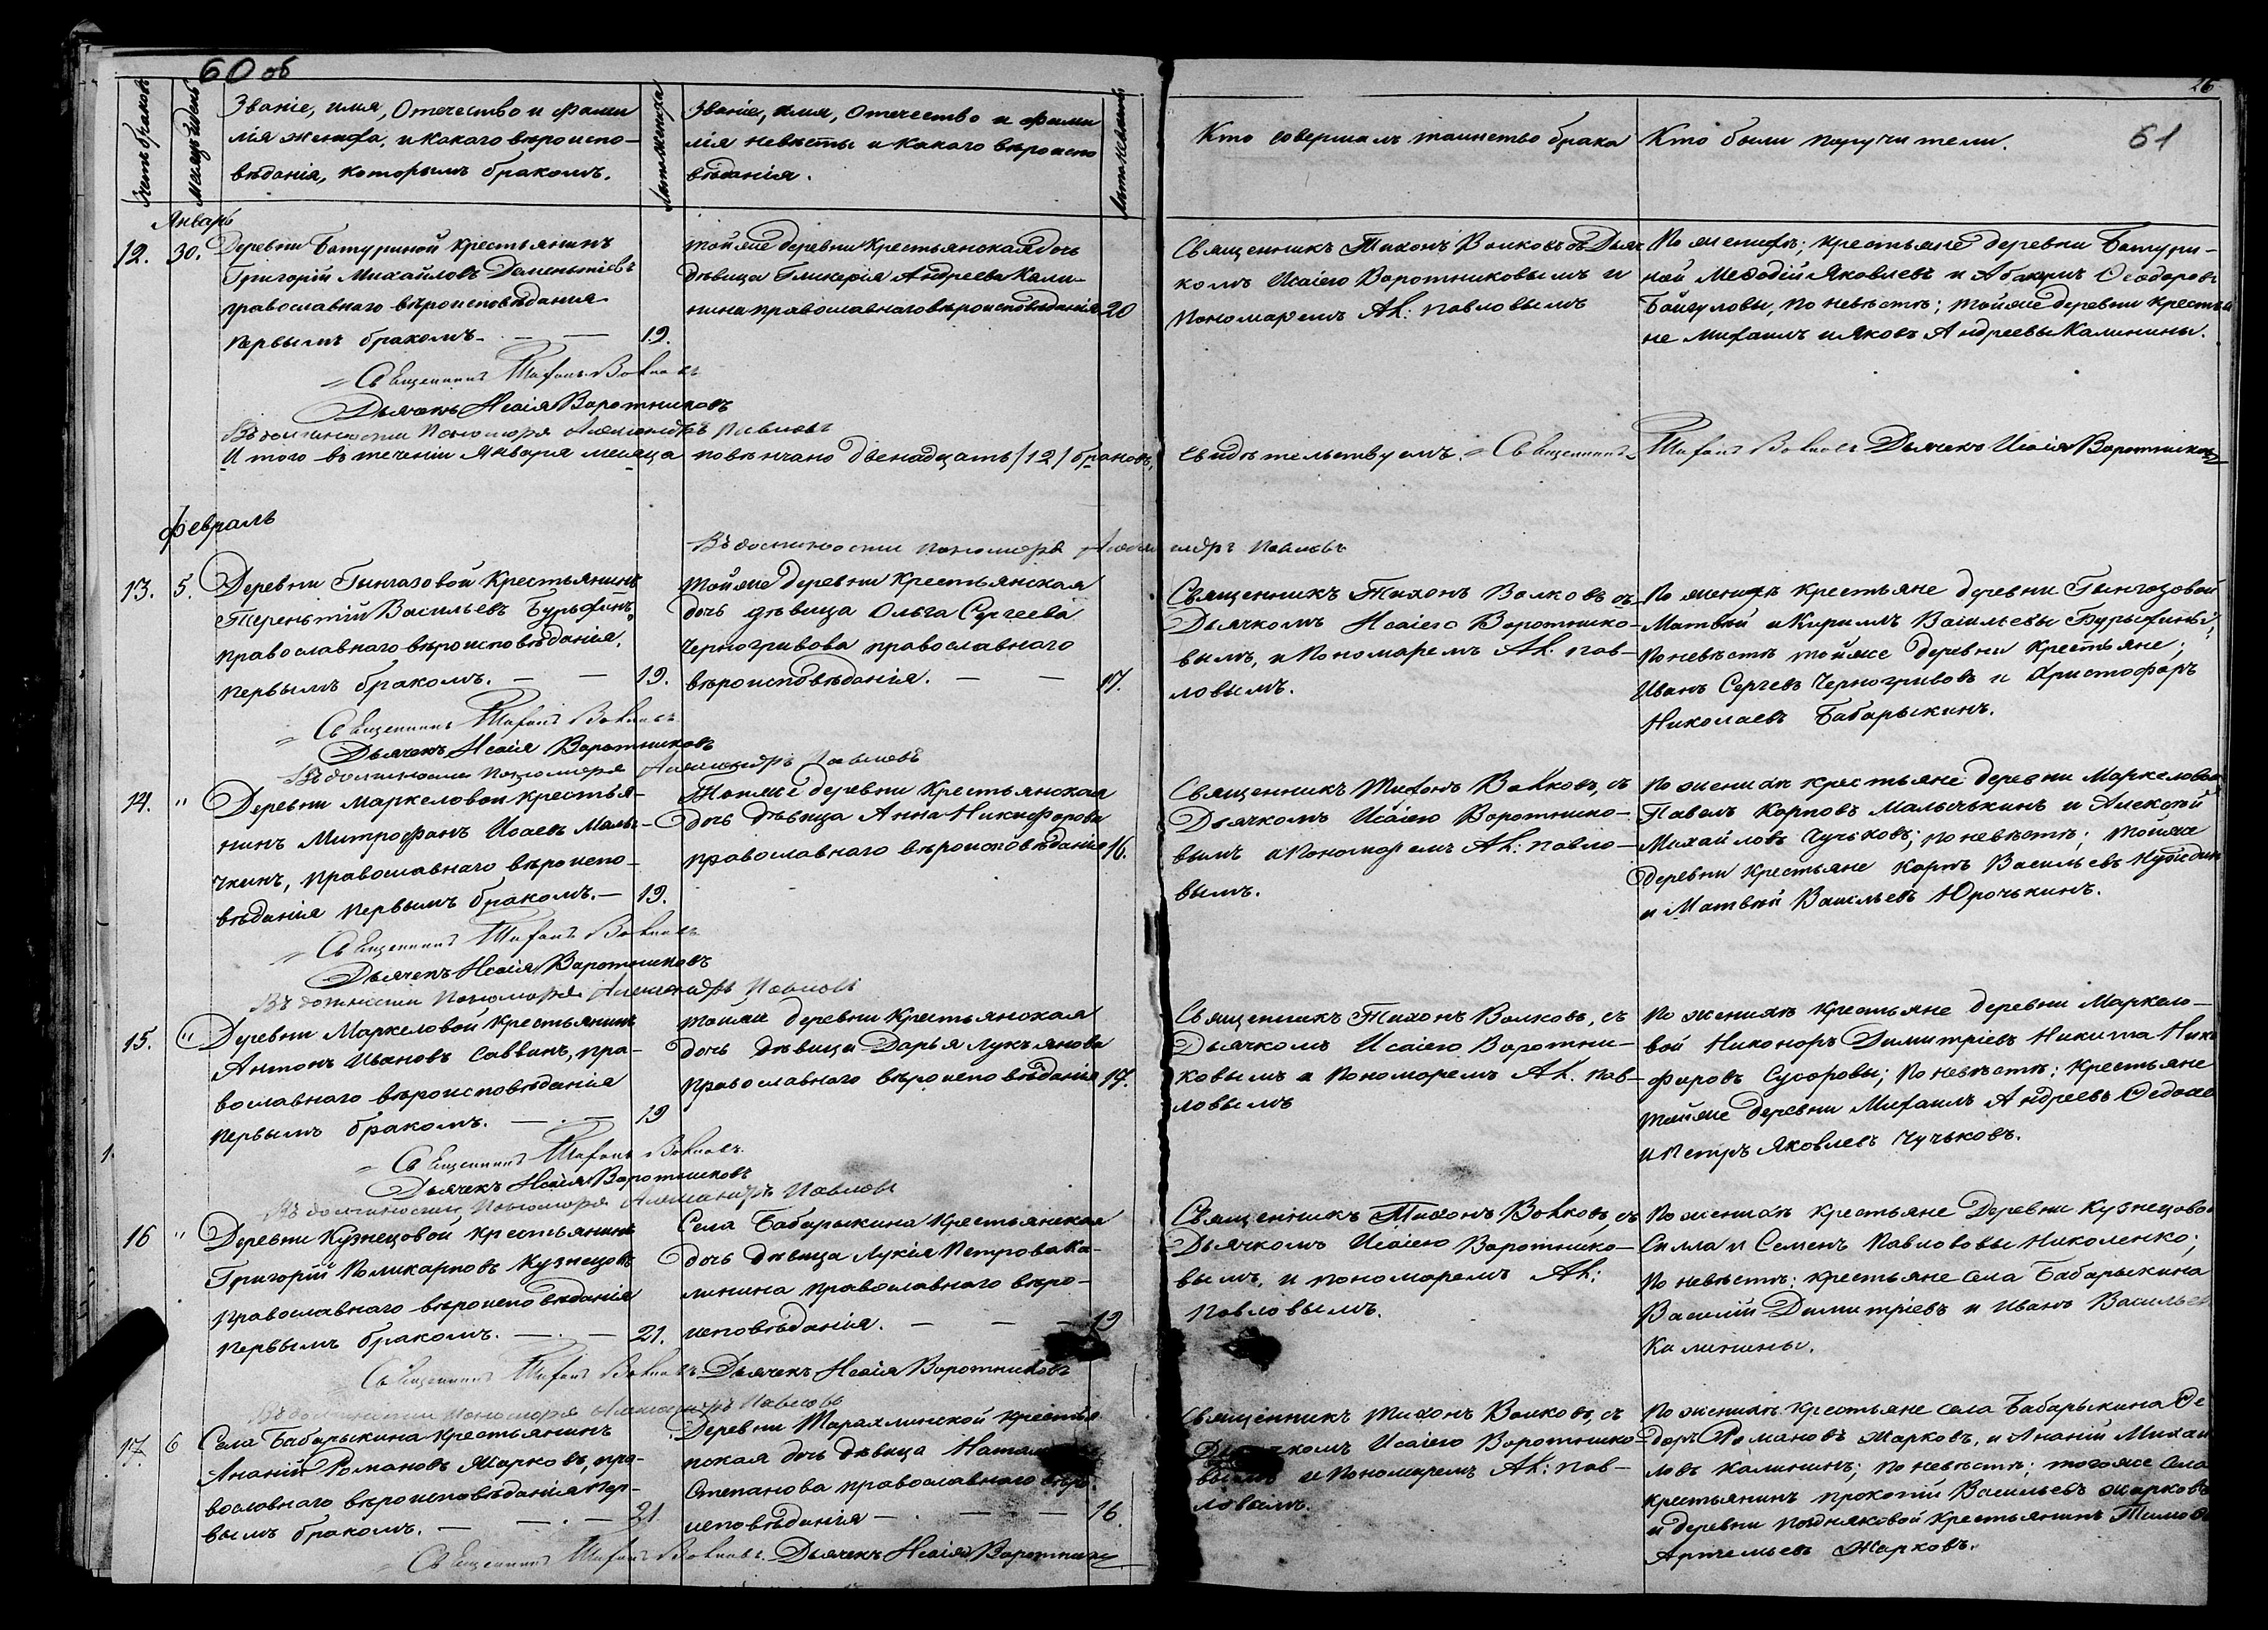 60 об
26
61
Счетъ браковъ
Месяцъ и день
Званіе, имя, Отечество и фами
лія жениха, и какого вѣроиспо-
вѣданія, которымъ бракомъ.
Лета жениха
Званіе, имя, Отечество и фами
лія невѣсты и какого вѣроиспо
вѣданія.
Лета невѣсты
Кто совершалъ таинство брака
Кто были поручители.
Январь
12. 30. Деревни Батуриной крестьянинъ
Григорій Михайловъ Дементіевъ
православнаго вѣроисповѣдания
первымъ бракомъ. 19.
Той же деревни Крестьянская дочь
дѣвица Гликерія Андреева Кали-
нина православнаго вѣроисповѣданія 20
Священникъ Тихонъ Волковъ съ Дьяч
комъ Исаіею Воротниковымъ и
Пономаремъ Ал: Павловымъ
По женихѣ; крестьяне деревни Батури-
ной Меѳодій Яковлевъ и Абакумъ Ѳеодоровъ
Байгуловы, по невѣстѣ; той же деревни крестья
не Михаилъ и Яковъ Андреевы Калинины.
Священникъ Тихонъ Волковъ
Дьячекъ Исаія Воротниковъ
Въ должности Пономоря Александръ Павловъ
И того въ теченіи Января месяца повѣнчано двенадцать /12/ браковъ,
свидѣтельствуемъ. Священникъ Тихонъ Волковъ Дьячекъ Исаія Воротниковъ
Февраль
Въ должности пономоря Александръ Павловъ
13. 5. Деревни Гынгазовой Крестьянинъ
Терентій Васильевъ Бурыхинъ
православнаго вѣроисповѣданія,
первымъ бракомъ. 19.
Той же деревни Крестьянская
дочь дѣвица Ольга Сергеева
Черногривова православнаго
вѣроисповѣданія. 17.
Священникъ Тихонъ Волковъ съ
Дьячкомъ Исаіею Воротнико-
вымъ, и Пономаремъ Ал: Пав-
ловымъ.
По женихѣ крестьяне деревни Гынгазовой
Матвѣй и Кирилъ Васильевы Бурыхины,
По невѣстѣ той же деревни Крестьяне;
Иванъ Сергевъ Черногривовъ и Христофоръ
Николаевъ Бабарыкинъ.
Священникъ Тихонъ Волковъ
Дьячекъ Исаія Воротниковъ
Въ должности Пономоря Александръ Павловъ
14. " Деревни Маркеловой крестья-
нинъ Митрофанъ Исаевъ Маль-
чкинъ, православнаго вѣроиспо-
вѣданія первымъ бракомъ. 19.
Той же деревни Крестьянская
дочь дѣвица Анна Никифорова
православнаго вѣроисповѣданія 16.
Священникъ Тихонъ Волковъ, съ
Дьячкомъ Исаіею Воротнико-
вымъ и Пономоремъ Ал: Павло-
вымъ.
По женихѣ крестьяне деревни Маркеловой
Павелъ Карповъ Мальчькинъ и Алексѣй
Михайловъ Чучьковъ; по невѣстѣ; той же
деревни Крестьяне Карпъ Васильевъ
и Матвѣй Васильевъ Юрочькинъ.
Священникъ Тихонъ Волковъ
Дьячекъ Исаія Воротниковъ
Въ должности Пономоря Александръ Павловъ
15. " Деревни Маркеловой Крестьянинъ
Антонъ Ивановъ Саввинъ, пра-
вославнаго вѣроисповѣданія
первымъ бракомъ. 19
Той же деревни Крестьянская
дочь дѣвица Дарья Лукьянова
православнаго вѣроисповѣданія 17.
Священникъ Тихонъ Волковъ, съ
Дьячкомъ Исаіею Воротни-
ковымъ и Пономоремъ Ал. Пав-
ловымъ
По женихѣ Крестьяне деревни Маркело-
вой Никоноръ Димитріевъ Никита Ники
форовъ Сусоровы; По невѣстѣ; Крестьяне
той же деревни Михаилъ Андреевъ
и Петръ Яковлевъ Чучьковъ.
Священникъ Тихонъ Волковъ.
Дьячекъ Исаія Воротниковъ
Въ должности Пономоря Александръ Павловъ
16 " Деревни Кузнецовой крестьянинъ
Григорій Поликарповъ Кузнецовъ
православнаго вѣроисповѣданія
первымъ бракомъ. 21.
Села Бабарыкина Крестьянская
дочь дѣвица Лукія Петрова Ка-
линина православнаго вѣро-
исповѣданія. 19
Священникъ Тихонъ Волковъ, съ
Дьячкомъ Исаіею Воротнико-
вымъ, и пономаремъ Ал:
Павловымъ.
По женихѣ крестьяне Деревни Кузнецовой
Силла и Семенъ Павлововы Николенко;
По невѣстѣ: крестьяне села Бабарыкина
Василій Димитріевъ и Иванъ Васильев
Калинины.
Священникъ Тихонъ Волковъ. Дьячекъ Исаія Воротниковъ
Въ должности Пономоря Александръ Павловъ
17. 6 Села Бабарыкина Крестьянинъ
Ананій Романовъ Жарковъ, пра-
вославнаго вѣроисповѣданія пер-
вымъ бракомъ. 21.
Деревни Тарахлинской крестья
нская дочь дѣвица
Степанова православнаго вѣро
исповѣданія 16.
Священникъ Тихонъ Волковъ, съ
Дьячкомъ Исаіею Воротнико-
вымъ и Пономаремъ Ал: Пав-
ловымъ.
По женихѣ крестьяне села Бабарыкина Ѳе
доръ Романовъ Жарковъ, и Ананій Михаи
ловъ Калининъ; по невѣстѣ; тогоже Села
крестьянинъ Прокопій Васильевъ Жарковъ
и деревни Поздняковой Крестьянинъ
Артемьевъ Жарковъ.
Священникъ Тихонъ Волковъ. Дьячекъ Исаія Воротниковъ